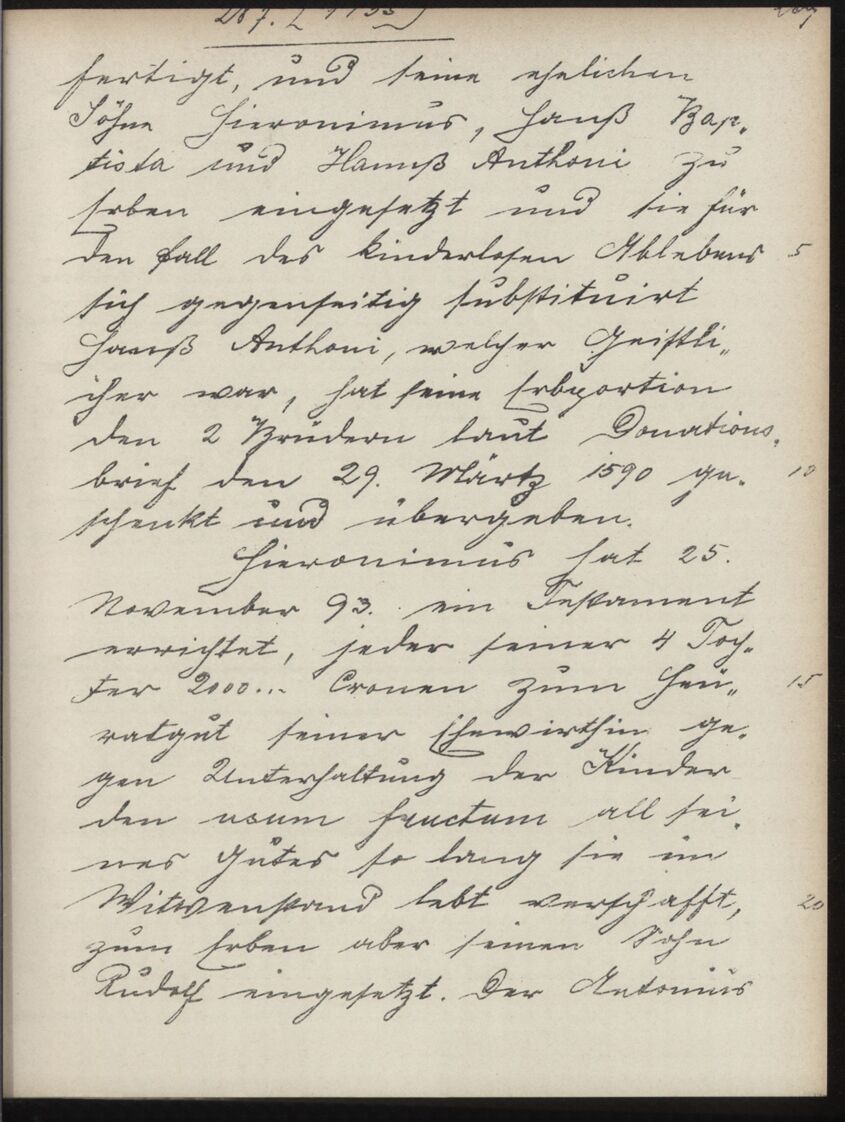 287. [1133]
fertigt, und seine ehelichen
Söhne Hieronimus, Hanß Bap„
tista und Hannß Anthoni zu
Erben eingesetzt und sie für
den Fall des kinderlosen Ablebens 5
sich gegenseitig substituirt
Hanß Anthoni, welcher Geistli„
cher war, hat seine Erbportion
den 2 Brüdern laut Donations„
brief den 29. Märtz 1590 ge„ 10
schenkt und übergeben.
Hieronimus hat 25.
November 93. ein Testament
errichtet, jeder seiner 4 Töch„
ter 2000... Cronen zum Heü„ 15
ratgut seiner Ehewirthin ge„
gen Unterhaltung der Kinder
den usum fructum all sei„
nes Gutes so lang sie im
Witwenstand lebt verschafft, 20
zum Erben aber seinen Sohn
Rudolf eingesetzt. Der Antonius